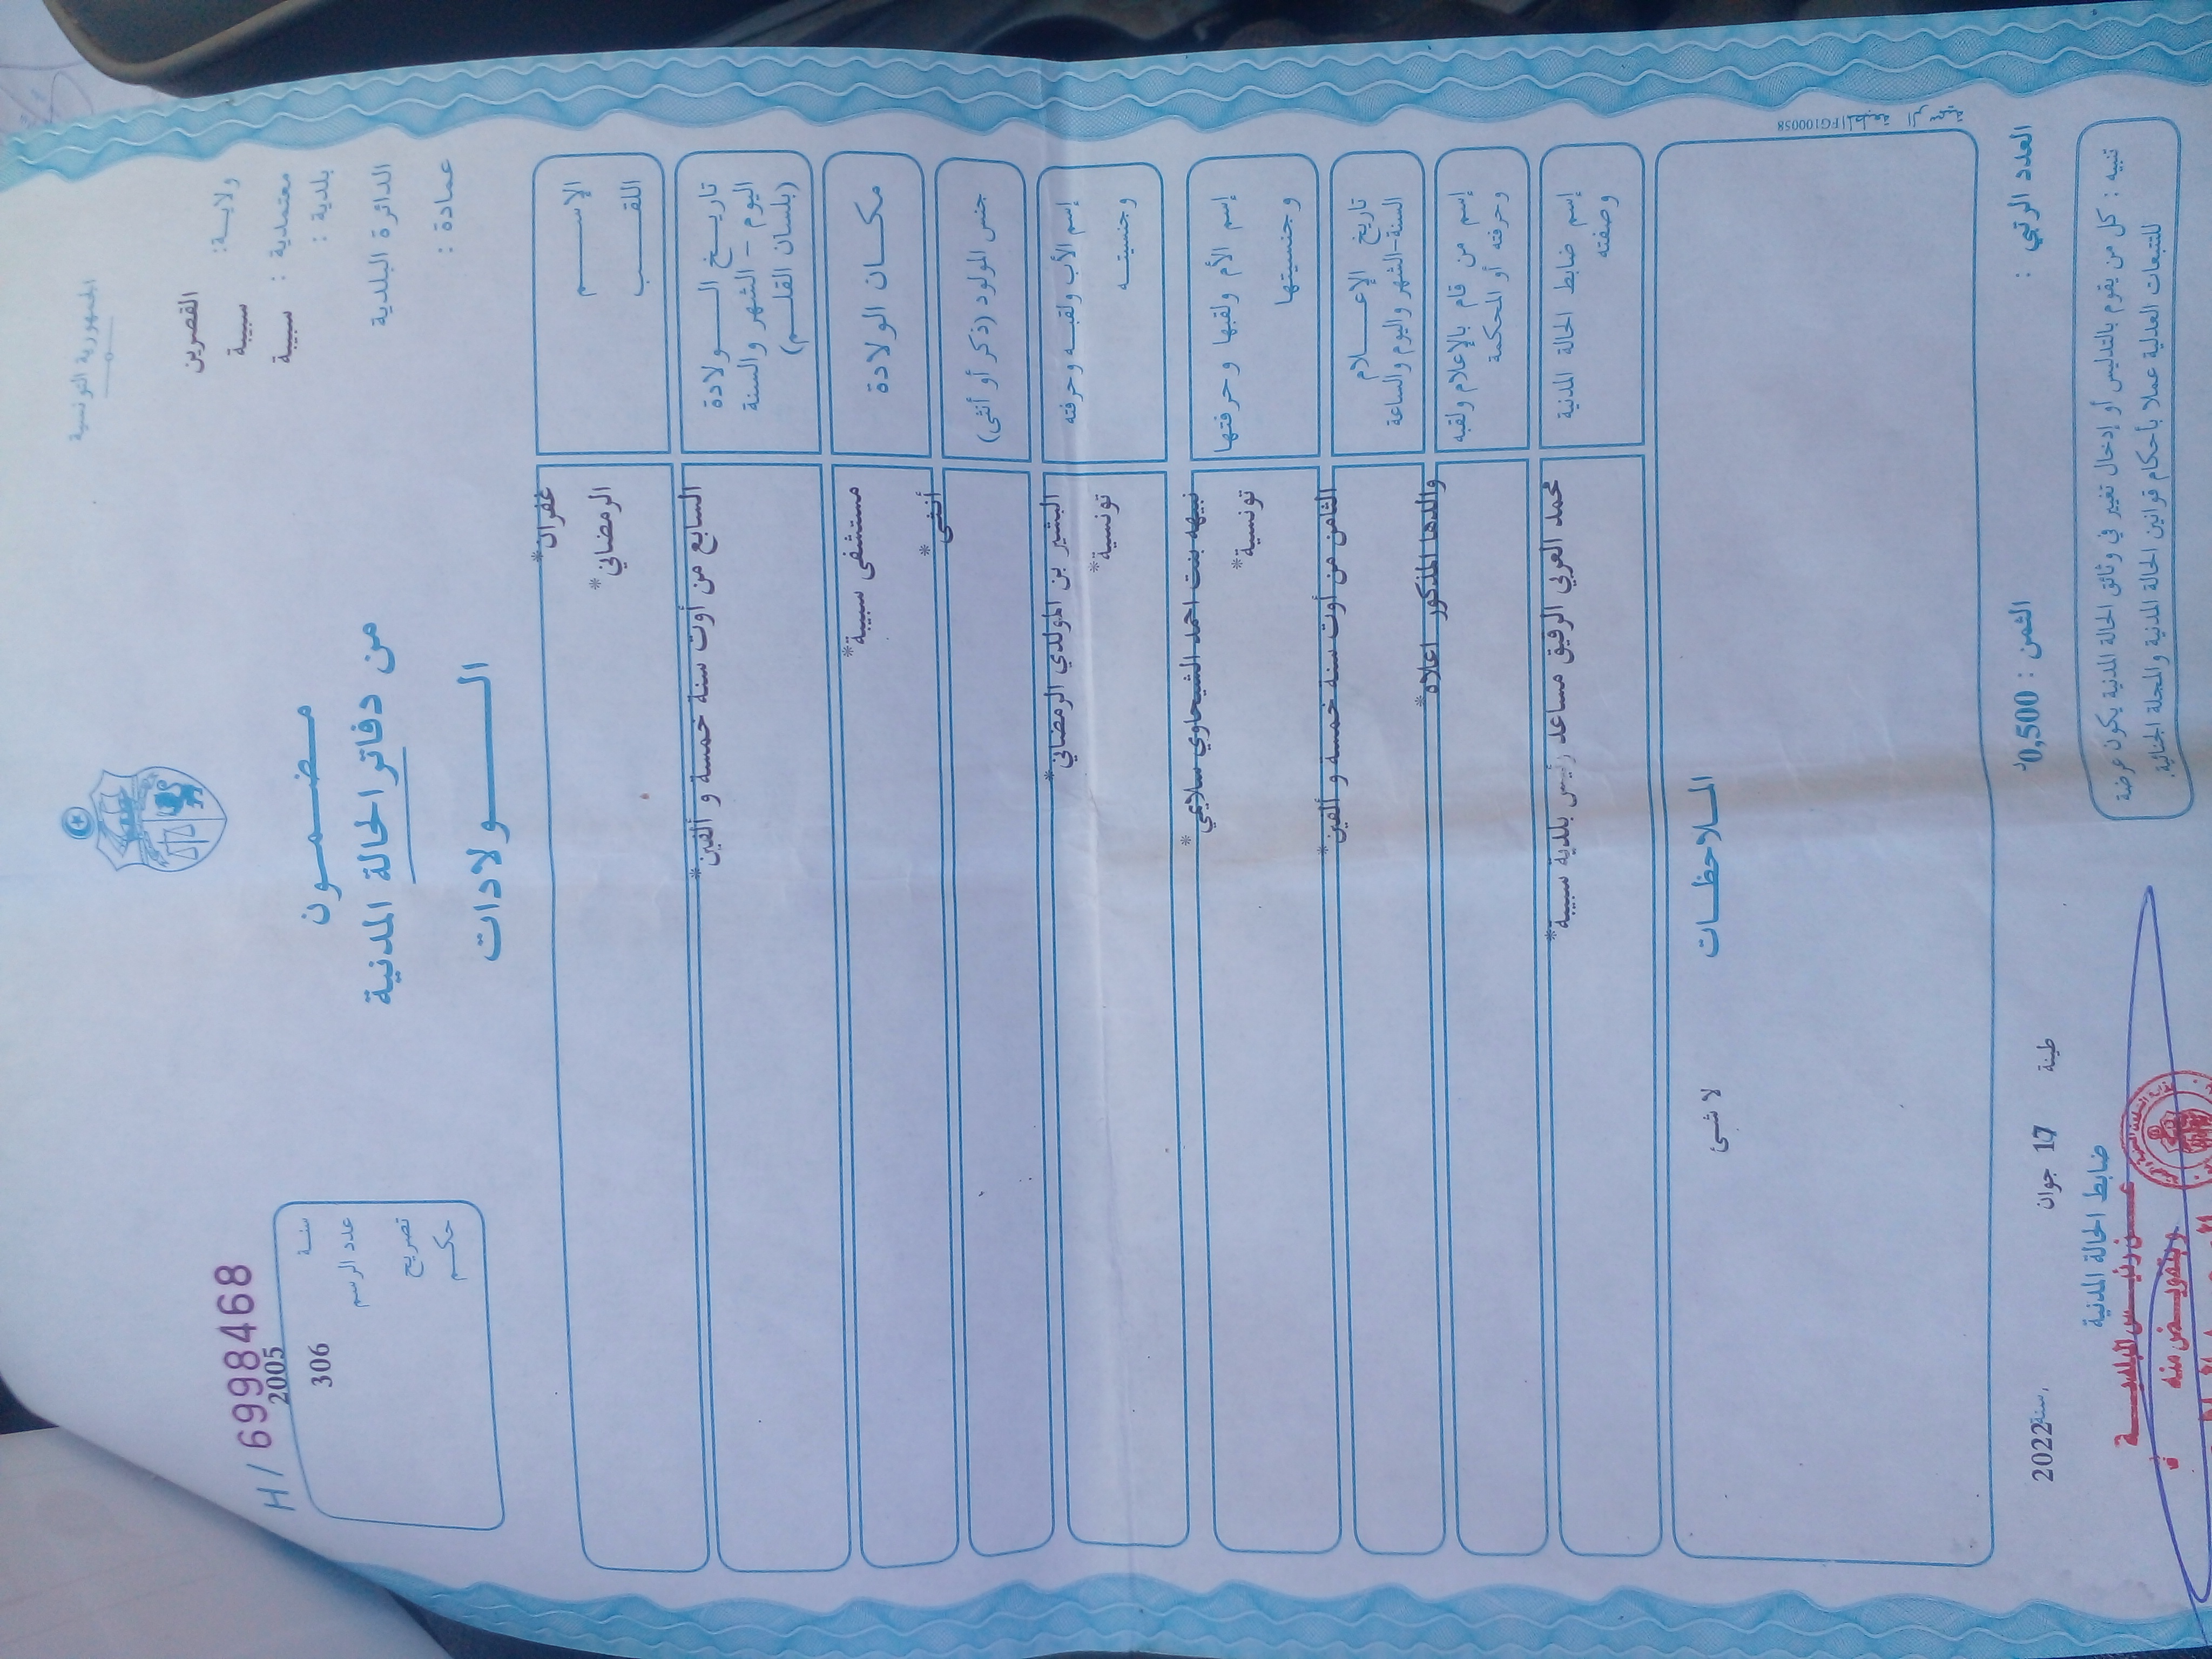 الجمهورية التونسية
ولايـة:
القصرين
معتمدية :
سبيبة
بلدية :
سبيبة
الدائرة البلدية
عمادة :
مضمـــون
من دفاتر الحالة المدنية
الـــولادات
H/ 69998468
سنـة
2005
عدد الرسم
306
تصريح
حكـم
الإســـم
غفران*
اللقـــب
الرمضاني*
تاريـخ الـــولادة
اليوم - الشهر والسنة
(بلسان القلـم)
السابع من أوت سنة خمسة و ألفين*
مكـــان الولادة
مستشفى سبيبة*
جنس المولود (ذكر أو أنثى)
أنثى*
إسم الأب ولقبـه وحرفته
البشير بن المولدي الرمضاني*
وجنسيتـه
تونسية*
إسم الأم ولقبها وحرفتها
نبيهه بنت احمد الشيحاوي سلايمي*
وجنسيتها
تونسية*
تاريخ الإعـــلام
السنة-الشهر واليوم والساعة
الثامن من أوت سنة خمسة و ألفين*
إسم من قام بالإعلام ولقبه
وحرفته أو المحكمة
والدها المذكور اعلاه*
إسم ضابط الحالة المدنية
وصفته
محمد العربي الرقيق مساعد رئيس بلدية سبيبة*
المـلاحظـات
لا شئ
FG100058
العدد الرتبي :
الثمن : 0,500د
طينة 17 جوان سنة 2022
ضابط الحالة المدنية
تنبيه : كل من يقوم بالتدليس أو إدخال تغيير في وثائق الحالة المدنية يكون عرضة
للتتبعات العدلية عملا بأحكام قوانين الحالة المدنية والمجلة الجنائية.
عـن رئيـس البلديـــة
وبتفويـض منه